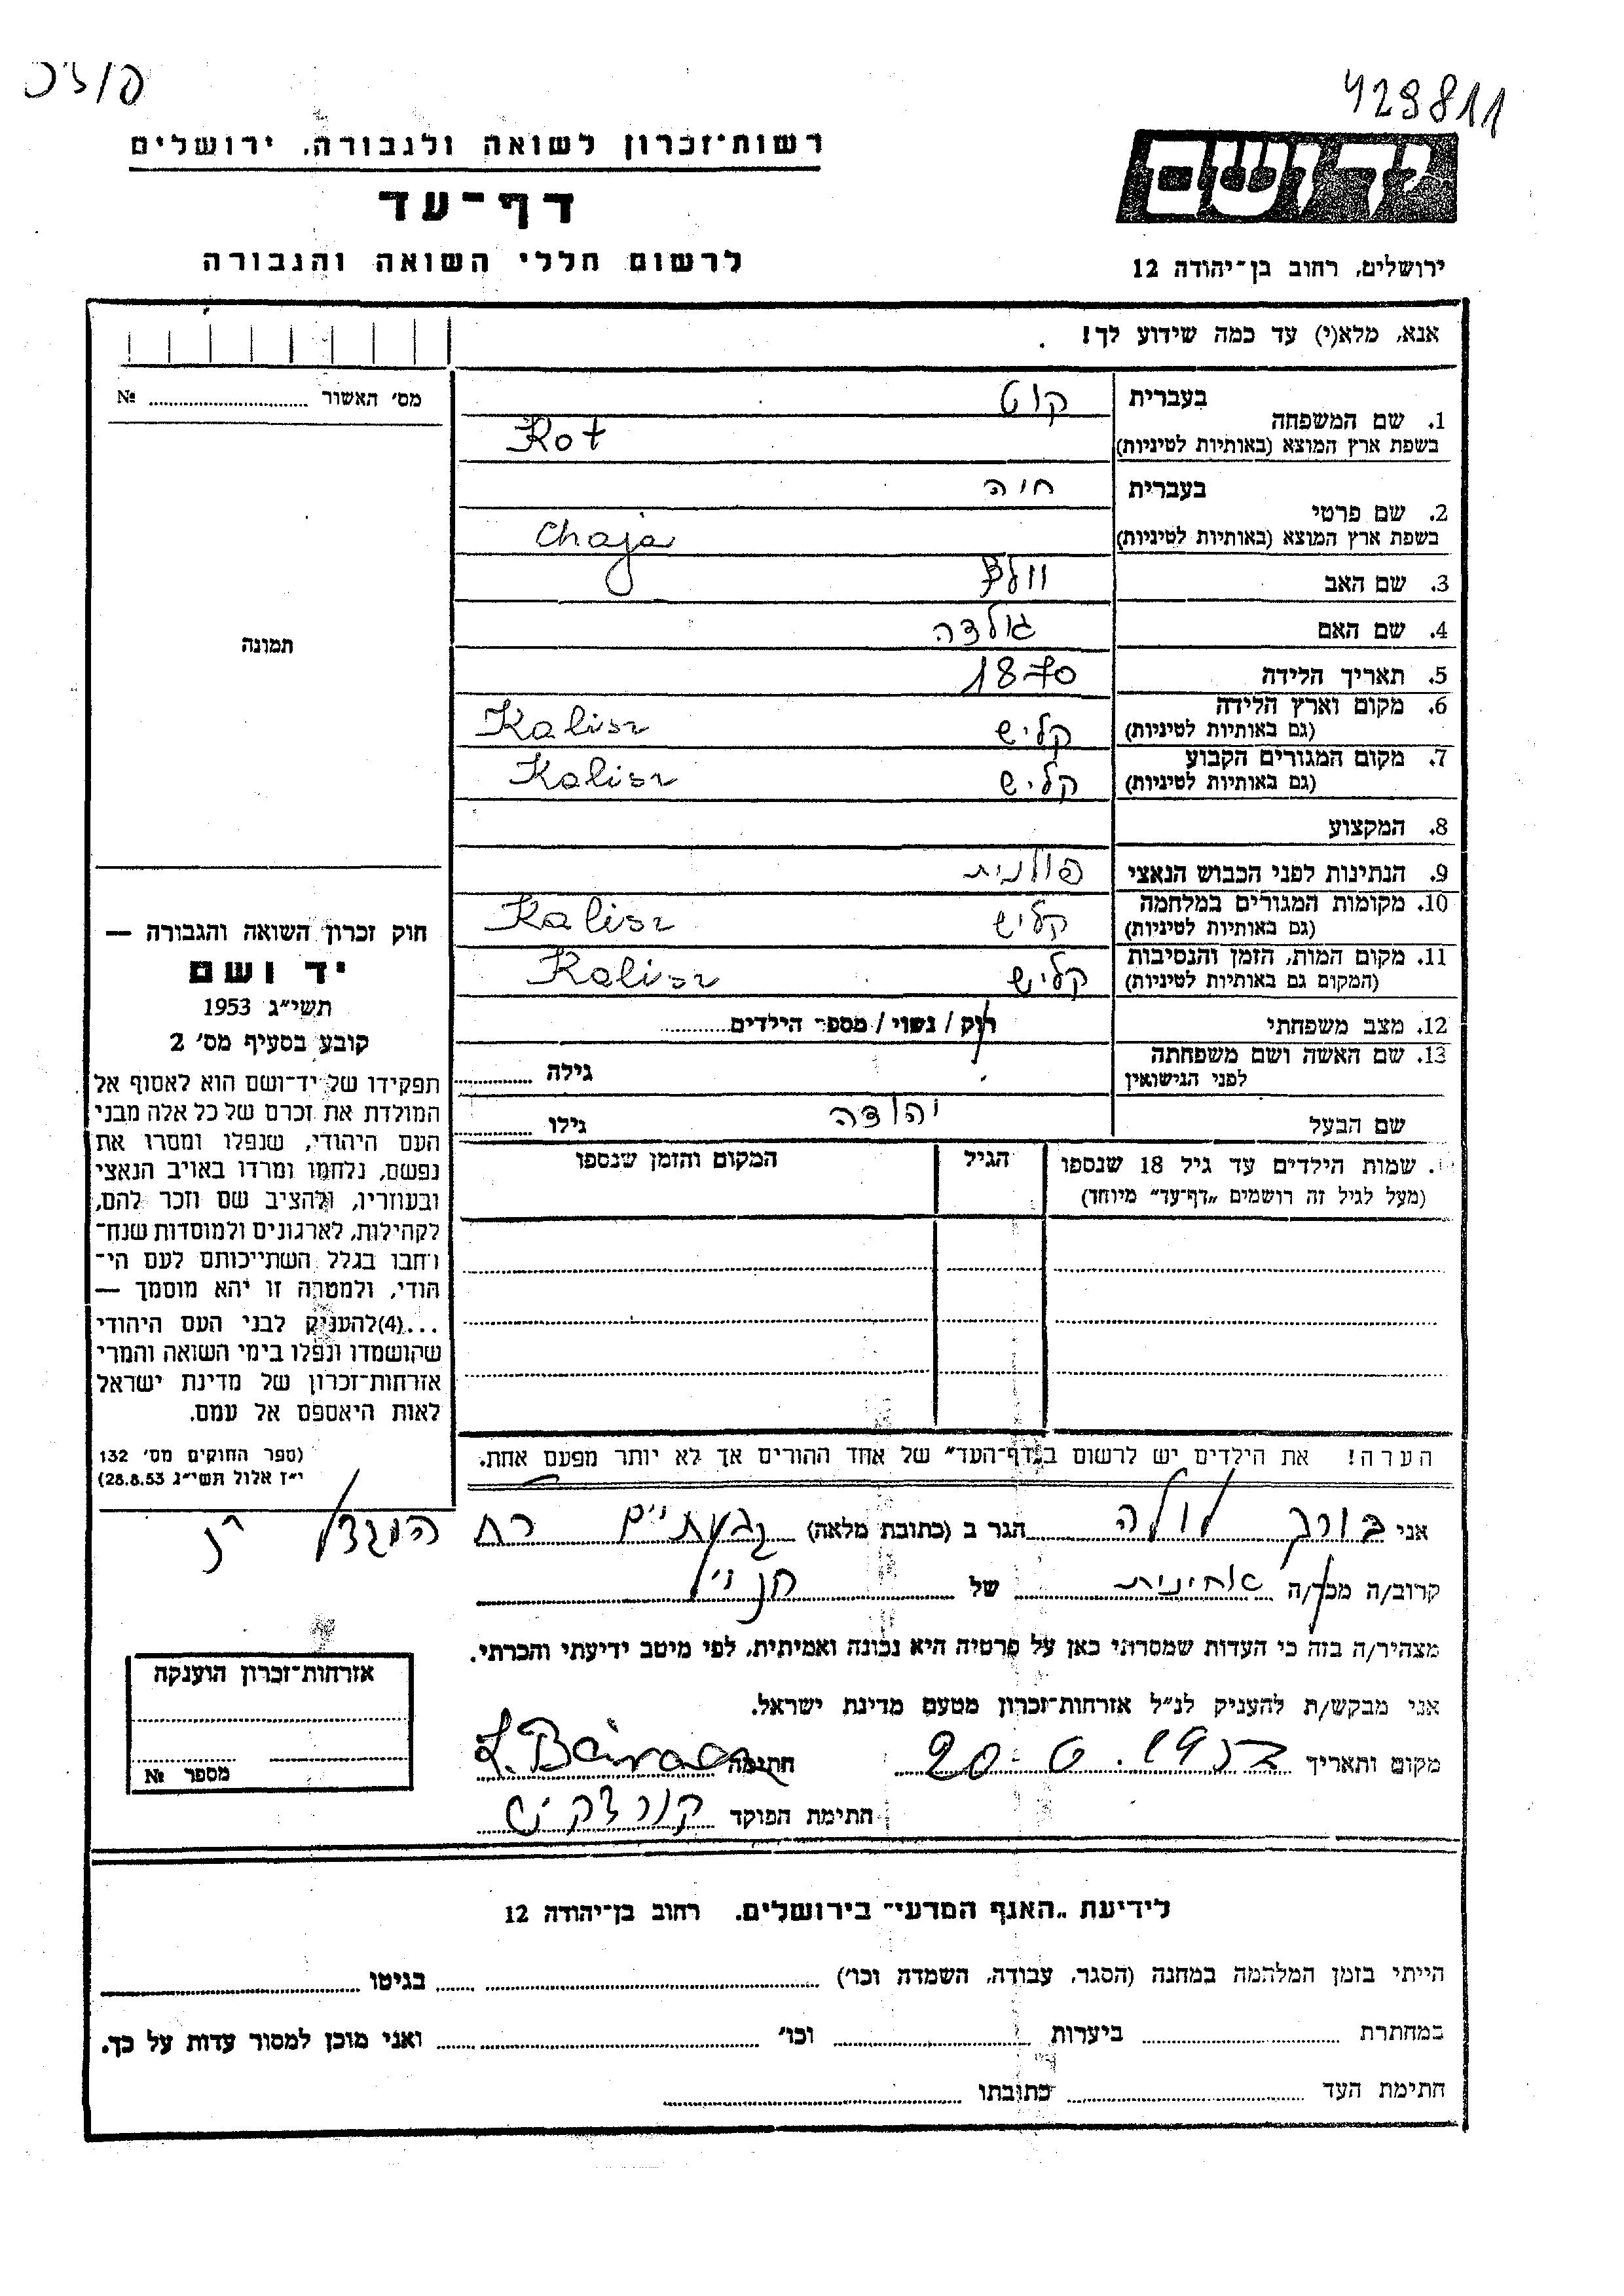 429811
רשות־זכרון לשואה ולגבורה, ירושלים
ידושם
דף־עד
לרשום חללי השואה והגבורה
ירושלים, רחוב בן־יהודה 12
אנא, מלא(י) עד כמה שידוע לך!
מס׳ האשור ........ №
1. שם המשפחה
בעברית קוט
בשפת ארץ המוצא (באותיות לטיניות) Kot
2. שם פרטי
בעברית חיה
בשפת ארץ המוצא (באותיות לטיניות) Chaja
3. שם האב וולף
4. שם האם גולדה
5. תאריך הלידה 1870
6. מקום וארץ הלידה
(גם באותיות לטיניות) קליש Kalisz
7. מקום המגורים הקבוע
(גם באותיות לטיניות) קליש Kalisz
8. המקצוע
9. הנתינות לפני הכבוש הנאצי פולנית
10. מקומות המגורים במלחמה
(גם באותיות לטיניות) קליש Kalisz
11. מקום המות, הזמן והנסיבות
(המקום גם באותיות לטיניות) קליש Kalisz
12. מצב משפחתי רוק / נשוי / מספר הילדים
13. שם האשה ושם משפחתה
לפני הנישואין גילה
שם הבעל יהודה גילו
תמונה
חוק זכרון השואה והגבורה —
יד ושם
תשי״ג 1953
קובע בסעיף מס׳ 2
תפקידו של יד־ושם הוא לאסוף אל
המולדת את זכרם של כל אלה מבני
העם היהודי, שנפלו ומסרו את
נפשם, נלחמו ומרדו באויב הנאצי
ובעוזריו, ולהציב שם וזכר להם,
לקהילות, לארגונים ולמוסדות שנח־
רחבו בגלל השתייכותם לעם הי־
הודי, ולמטרה זו יהא מוסמך —
...(4)להעניק לבני העם היהודי
שהושמדו ונפלו בימי השואה והמרי
אזרחות־זכרון של מדינת ישראל
לאות היאספם אל עמם.
(ספר החוקים מס׳ 132
י״ז אלול תשי״ג 28.8.53)
שמות הילדים עד גיל 18 שנספו
(מעל לגיל זה רושמים „דף־עד״ מיוחד)
הגיל
המקום והזמן שנספו
הערה! את הילדים יש לרשום ב„דף־העד״ של אחד ההורים אך לא יותר מפעם אחת.
אני לולה הגר ב (כתובת מלאה) גבעתיים רח
קרוב/ה מכר/ה אחינית של הנ״ל
מצהיר/ה בזה כי העדות שמסרתי כאן על פרטיה היא נכונה ואמיתית, לפי מיטב ידיעתי והכרתי.
אני מבקש/ת להעניק לנ״ל אזרחות־זכרון מטעם מדינת ישראל.
מקום ותאריך 20-6.1957 חתימה
חתימת הפוקד
אזרחות־זכרון הוענקה
מספר №
לידיעת „האגף המדעי״ בירושלים, רחוב בן־יהודה 12
הייתי בזמן המלחמה במחנה (הסגר, עבודה, השמדה וכו׳) בגיטו
במחתרת ביערות וכו׳ ואני מוכן למסור עדות על כך.
חתימת העד כתובתו